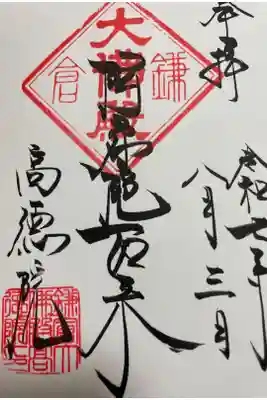 奉拝
令和七年
八月三日
鎌倉
大佛殿
阿弥陀如来
高徳院